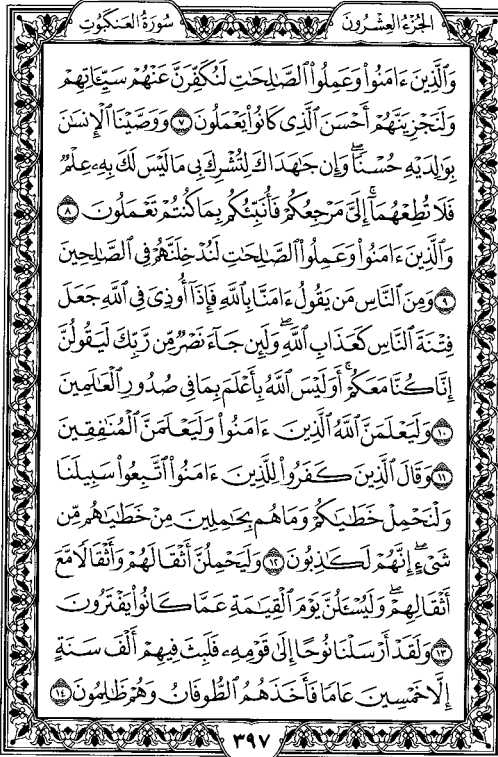 سُورَةُ العَنكَبُوتِ
الجُزْءُ العِشْرُونَ
وَٱلَّذِينَ ءَامَنُوا۟ وَعَمِلُوا۟ ٱلصَّٰلِحَٰتِ لَنُكَفِّرَنَّ عَنْهُمْ سَيِّـَٔاتِهِمْ
وَلَنَجْزِيَنَّهُمْ أَحْسَنَ ٱلَّذِى كَانُوا۟ يَعْمَلُونَ ٧ وَوَصَّيْنَا ٱلْإِنسَٰنَ
بِوَٰلِدَيْهِ حُسْنًا ۖ وَإِن جَٰهَدَاكَ لِتُشْرِكَ بِى مَا لَيْسَ لَكَ بِهِۦ عِلْمٌ
فَلَا تُطِعْهُمَآ ۚ إِلَىَّ مَرْجِعُكُمْ فَأُنَبِّئُكُم بِمَا كُنتُمْ تَعْمَلُونَ ٨
وَٱلَّذِينَ ءَامَنُوا۟ وَعَمِلُوا۟ ٱلصَّٰلِحَٰتِ لَنُدْخِلَنَّهُمْ فِى ٱلصَّٰلِحِينَ
٩ وَمِنَ ٱلنَّاسِ مَن يَقُولُ ءَامَنَّا بِٱللَّهِ فَإِذَآ أُوذِىَ فِى ٱللَّهِ جَعَلَ
فِتْنَةَ ٱلنَّاسِ كَعَذَابِ ٱللَّهِ ۖ وَلَئِن جَآءَ نَصْرٌ مِّن رَّبِّكَ لَيَقُولُنَّ
إِنَّا كُنَّا مَعَكُمْ ۚ أَوَلَيْسَ ٱللَّهُ بِأَعْلَمَ بِمَا فِى صُدُورِ ٱلْعَٰلَمِينَ
١٠ وَلَيَعْلَمَنَّ ٱللَّهُ ٱلَّذِينَ ءَامَنُوا۟ وَلَيَعْلَمَنَّ ٱلْمُنَٰفِقِينَ
١١ وَقَالَ ٱلَّذِينَ كَفَرُوا۟ لِلَّذِينَ ءَامَنُوا۟ ٱتَّبِعُوا۟ سَبِيلَنَا
وَلْنَحْمِلْ خَطَٰيَٰكُمْ وَمَا هُم بِحَٰمِلِينَ مِنْ خَطَٰيَٰهُم مِّن
شَىْءٍ ۖ إِنَّهُمْ لَكَٰذِبُونَ ١٢ وَلَيَحْمِلُنَّ أَثْقَالَهُمْ وَأَثْقَالًا مَّعَ
أَثْقَالِهِمْ ۖ وَلَيُسْـَٔلُنَّ يَوْمَ ٱلْقِيَٰمَةِ عَمَّا كَانُوا۟ يَفْتَرُونَ
١٣ وَلَقَدْ أَرْسَلْنَا نُوحًا إِلَىٰ قَوْمِهِۦ فَلَبِثَ فِيهِمْ أَلْفَ سَنَةٍ
إِلَّا خَمْسِينَ عَامًا فَأَخَذَهُمُ ٱلطُّوفَانُ وَهُمْ ظَٰلِمُونَ ١٤
٣٩٧